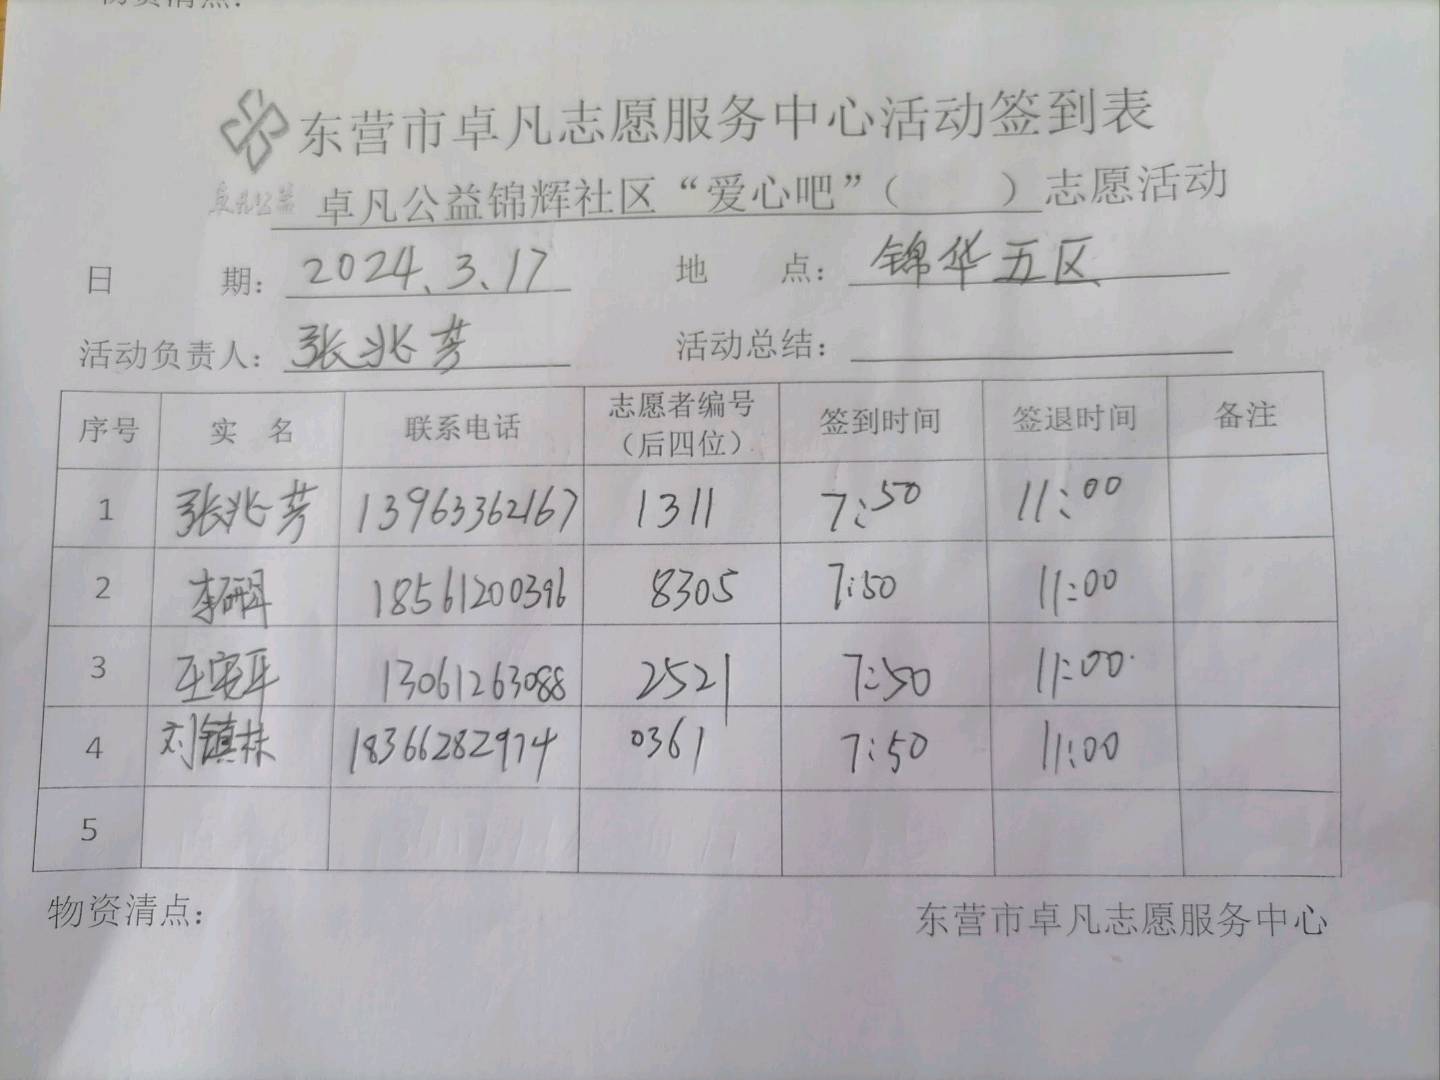 物资清点:
东营市卓凡志愿服务中心活动签到表
卓凡公益
卓凡公益锦辉社区“爱心吧”（ ）志愿活动
日 期: 2024.3.17 地 点: 锦华五区
活动负责人: 张兆芳 活动总结:
序号 实 名 联系电话 志愿者编号（后四位） 签到时间 签退时间 备注
1 张兆芳 13963362167 1311 7:50 11:00
2 李 18561200396 8305 7:50 11:00
3 王安平 13061263088 2521 7:50 11:00
4 刘镇林 18366282974 0361 7:50 11:00
5
物资清点: 东营市卓凡志愿服务中心